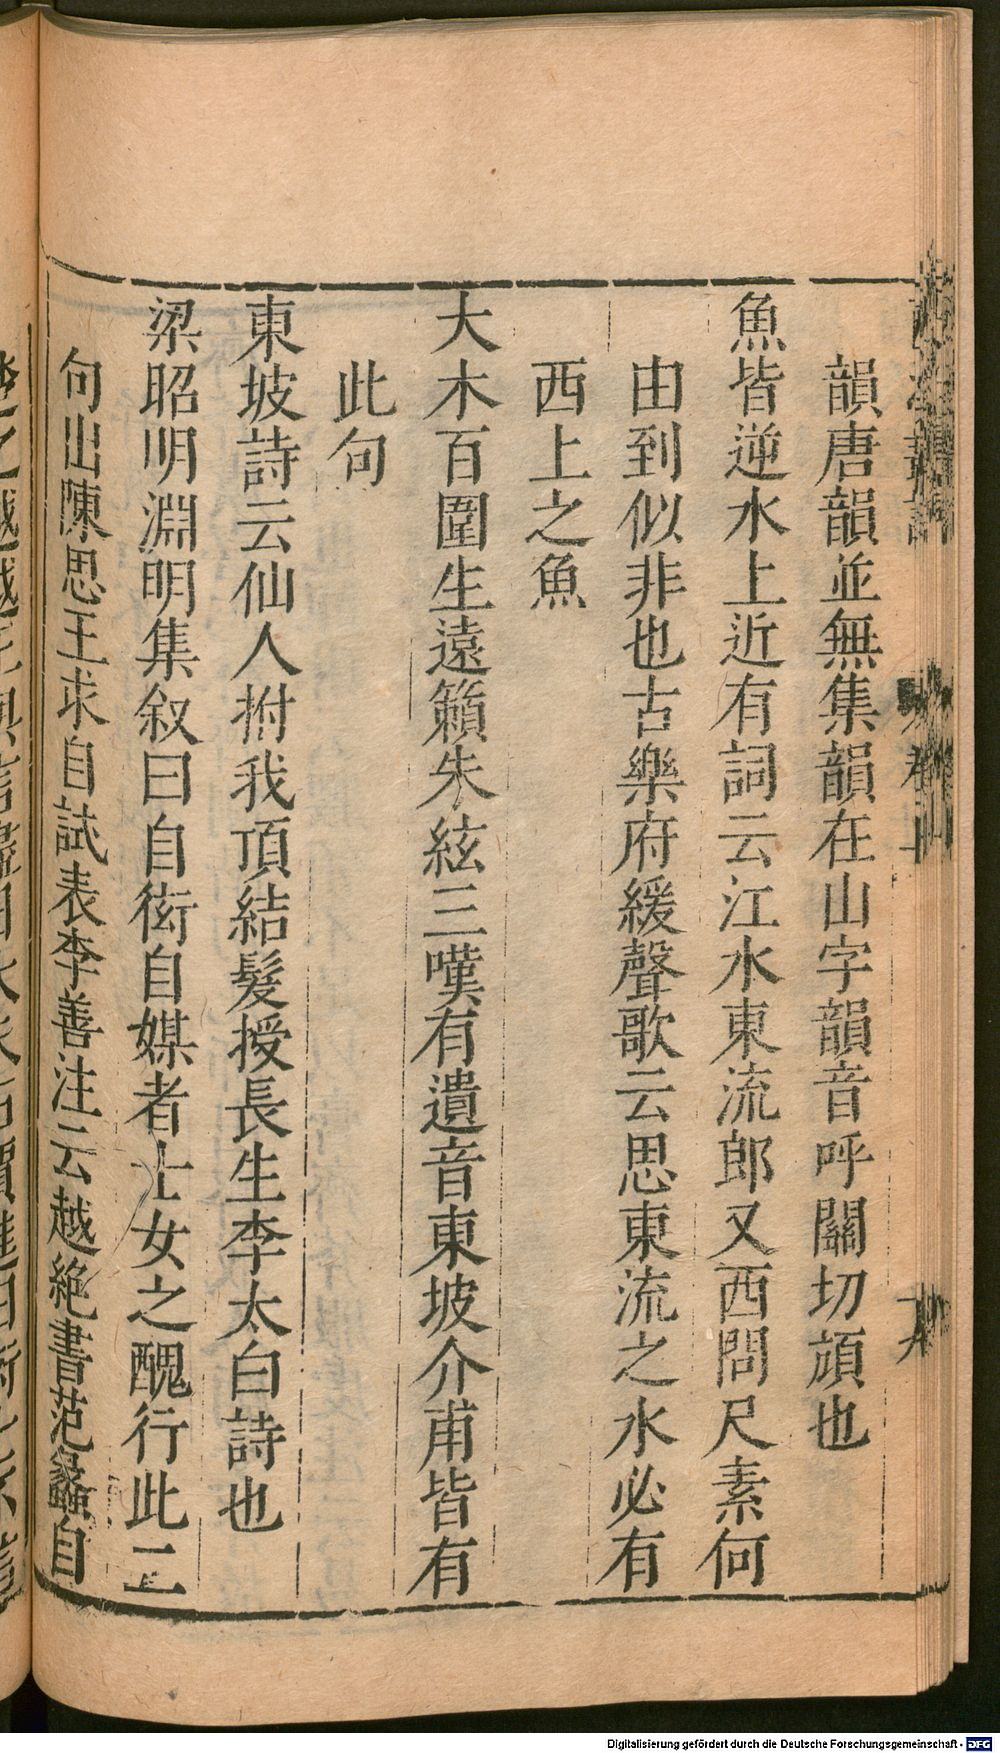 韻唐韻並無集韻在山字韻音呼關切頑也
魚皆逆水上近有詞云江水東流郎又西問尺素何
由到似非也古樂府緩聲歌云思東流之水必有
西上之魚
大木百圍生遠籟朱絃三嘆有遺音東坡介甫皆有
此句
東坡詩云仙人拊我頂結髮授長生李太白詩也
梁昭明淵明集叙曰自衒自媒者士女之醜行此二
句出陳思王求自試表李善注云越絶書范蠡自
Digitalisierung gefördert durch die Deutsche Forschungsgemeinschaft - DFG